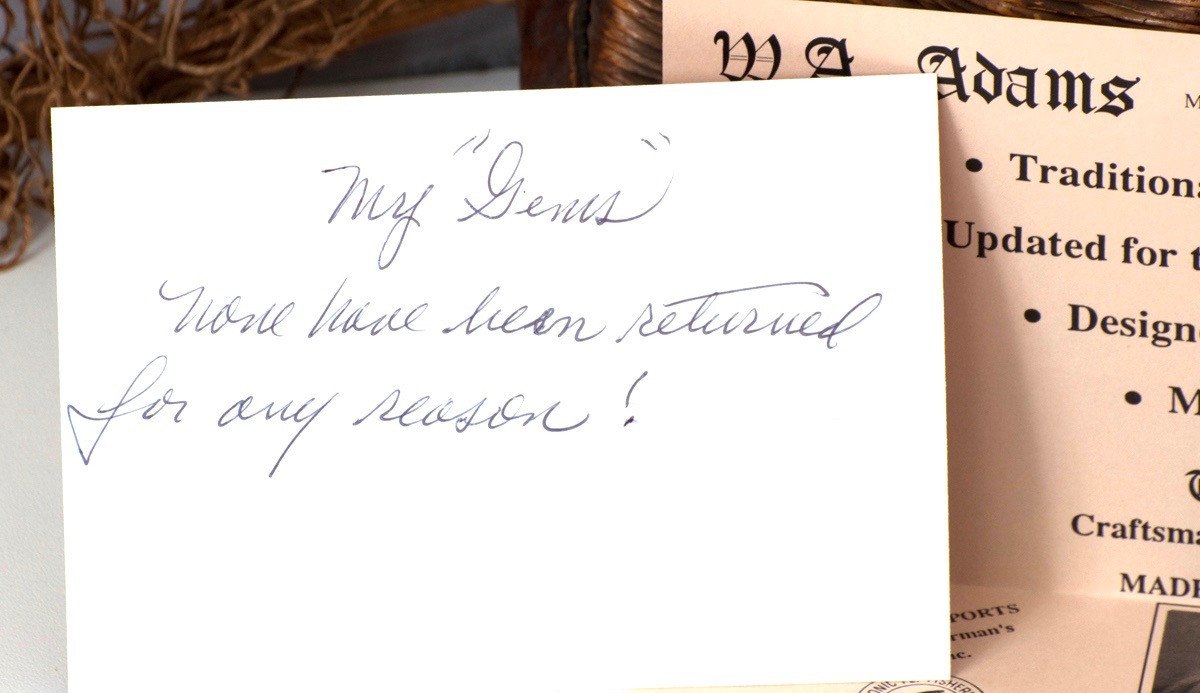 My "Gems"
None have been returned
for any reason!
W.A. Adams
M
• Traditiona
Updated for t
• Design
• M
Craftsma
MADE
PORTS
rman's
nc.